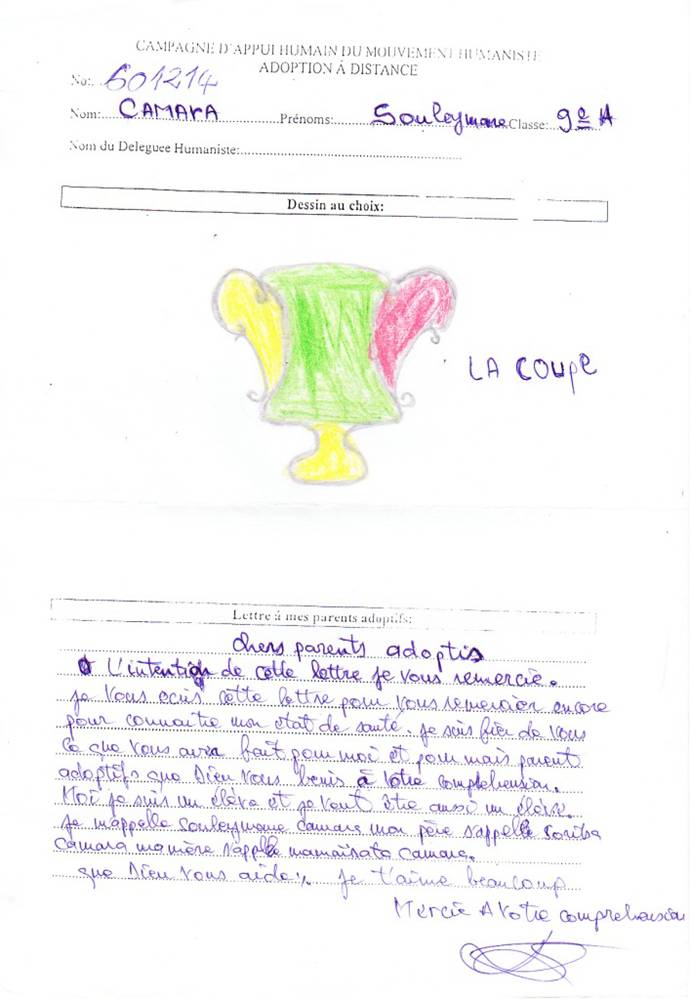 CAMPAGNE D'APPUI HUMAIN DU MOUVEMENT HUMANISTE
ADOPTION À DISTANCE
No: 601214
Nom: CAMARA Prénoms: Souleymane Classe: 9e A
Nom du Deleguee Humaniste:
Dessin au choix:
LA COUPE
Lettre à mes parents adoptifs:
chers parents adoptis
L'intention de cette lettre je vous remercie.
je vous ecris cette lettre pour vous remercier encore
pour connaitre mon etat de santé. je suis fier de vous
ce que vous avez fait pour moi et pour mais parent
adoptifs que Dieu vous benis à votre comprehension.
Moi je suis un élève et je veut être aussi un élève.
je m'appelle Souleymane camara mon père s'appelle Soriba
Camara ma mère s'applle mamaïsata Camara.
que Dieu vous aide. je t'aime beaucoup
Mercie A votre comprehension